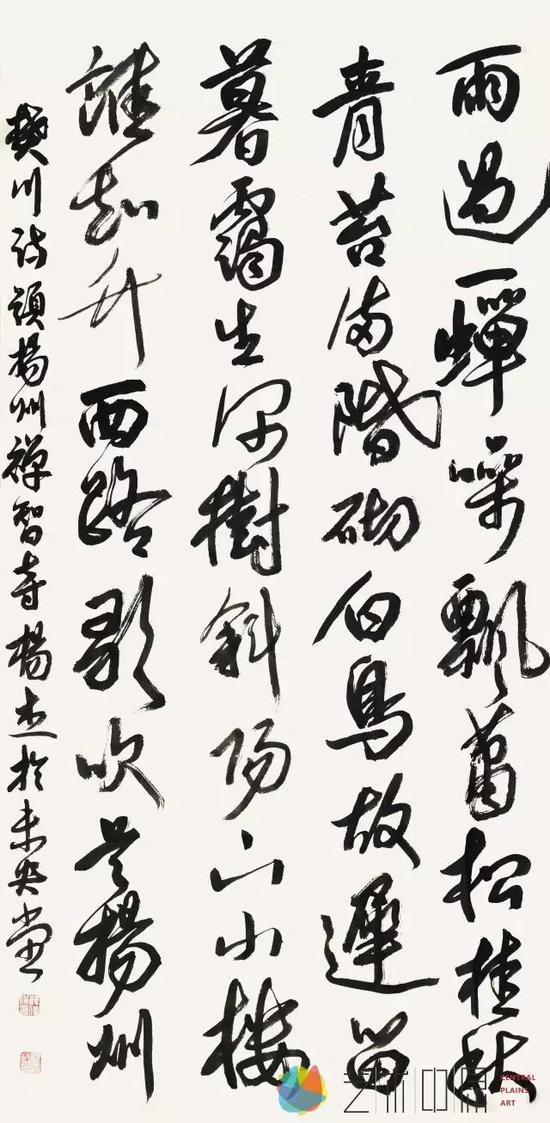 雨過一蟬噪飄蕭松桂秋
青苔滿階砌白鳥故遲留
暮靄生深樹斜陽下小樓
誰知竹西路歌吹是楊州
樊川詩題楊州禪智寺楊杰於未央堂
艺术中原
CENTRAL
PLAINS
ART